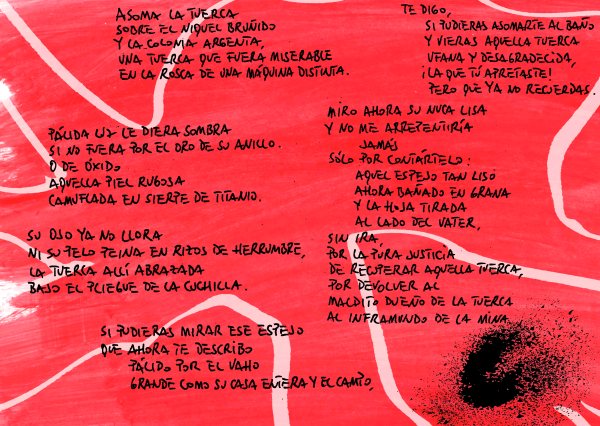 ASOMA LA TUERCA
SOBRE EL NIQUEL BRUÑIDO
Y LA COLONIA ARGENTA,
UNA TUERCA QUE FUERA MISERABLE
EN LA ROSCA DE UNA MÁQUINA DISTINTA.
PÁLIDA LUZ LE DIERA SOMBRA
SI NO FUERA POR EL ORO DE SU ANILLO.
O DE ÓXIDO
AQUELLA PIEL RUGOSA
CAMUFLADA EN SIERPE DE TITANIO.
SU OJO YA NO LLORA
NI SU PELO PEINA EN RIZOS DE HERRUMBRE,
LA TUERCA ALLÍ ABRAZADA
BAJO EL PLIEGUE DE LA CUCHILLA.
SI PUDIERAS MIRAR ESE ESPEJO
QUE AHORA TE DESCRIBO
PÁLIDO POR EL VAHO
GRANDE COMO SU CASA ENTERA Y EL CAMPO,
TE DIGO,
SI PUDIERAS ASOMARTE AL BAÑO
Y VIERAS AQUELLA TUERCA
UFANA Y DESAGRADECIDA,
¡LA QUE TÚ APRETASTE!
PERO QUE YA NO RECUERDAS.
MIRO AHORA SU NUCA LISA
Y NO ME ARREPENTIRÍA
JAMÁS
SÓLO POR CONTÁRTELO:
AQUEL ESPEJO TAN LISO
AHORA BAÑADO EN GRANA
Y LA HOJA TIRADA
AL LADO DEL VATER,
SIN IRA,
POR LA PURA JUSTICIA
DE RECUPERAR AQUELLA TUERCA,
POR DEVOLVER AL
MALDITO DUEÑO DE LA TUERCA
AL INFRAMUNDO DE LA MINA.